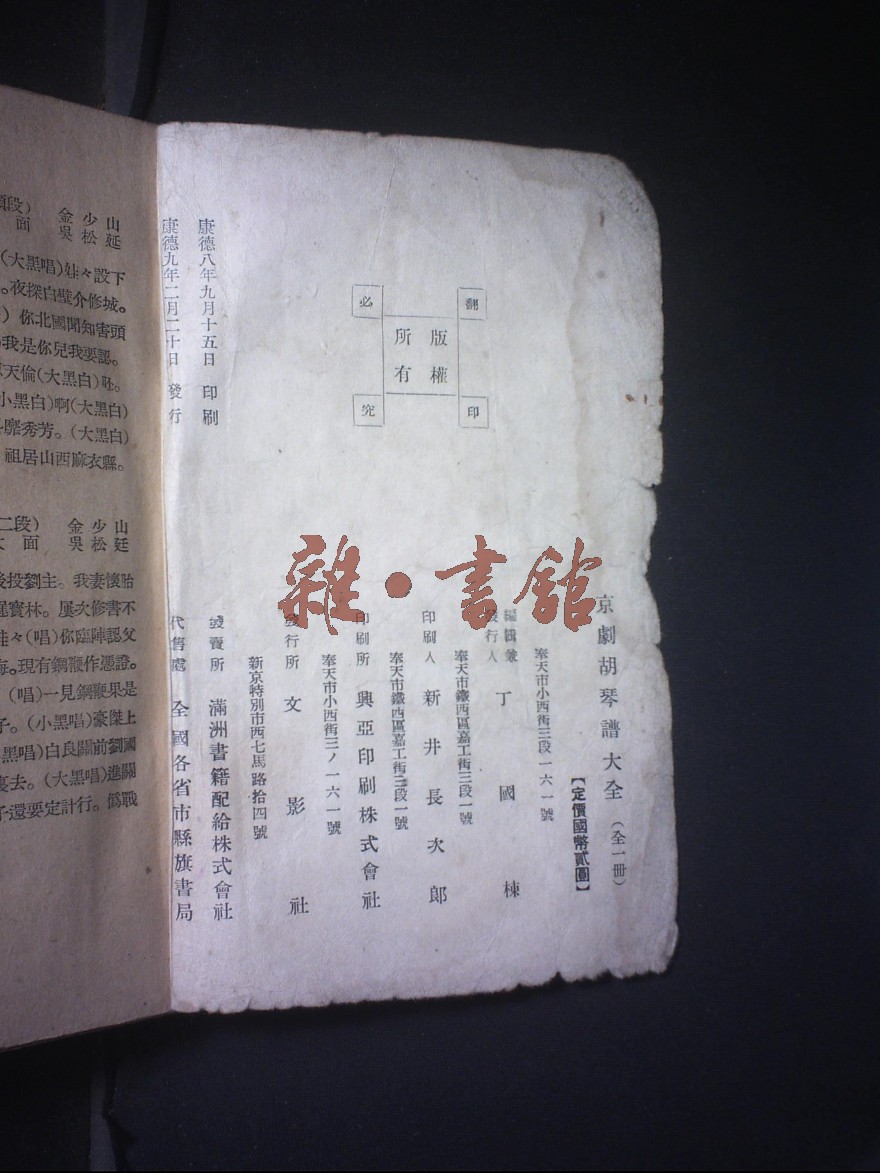 京劇胡琴譜大全（全一冊）
【定價國幣貳圓】
奉天市小西街三段一六一號
編輯兼發行人 丁國棟
奉天市鐵西區嘉工街三段一號
印刷人 新井長次郎
奉天市鐵西區嘉工街三段一號
印刷所 興亞印刷株式會社
奉天市小西街三ノ一六一號
發行所 文影社
新京特別市西七馬路拾四號
發賣所 滿洲書籍配給株式會社
代售處 全國各省市縣旗書局
版權所有
翻印必究
康德八年九月十五日 印刷
康德九年二月二十日 發行
雜·書館
段） 金少山
面 吳松延
（大黑唱）娃々設下
。夜探白壁介修城。
）你北國聞知害頭
我是你兒我要認。
天倫（大黑白）呸。
小黑白）啊（大黑白）
靡秀芳。（大黑白）
祖居山西麻衣縣。
二段） 金少山
面 吳松廷
後投劉主。我妻懷胎
寶林。屢次修書不
娃々（唱）你臨陣認父
海。現有鋼鞭作憑證。
（唱）一見鋼鞭果是
子。（小黑唱）豪傑上
黑唱）白良關前劉國
裏去。（大黑唱）進關
子還要定計行。僞戰